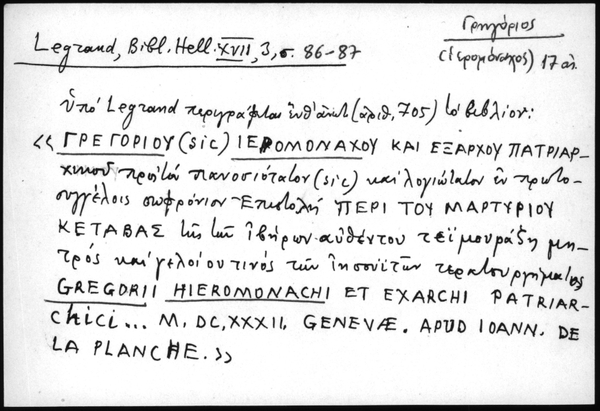 Γρηγόριος
(ἱερομόναχος) 17 αἰ.
Legrand, Bibl. Hell. XVII, 3, σ. 86-87
ὑπό Legrand περιγράφεται ἐνθ' ἀνωτ. (ἀριθ. 705) τό βιβλίον:
«ΓΡΕΓΟΡΙΟΥ (sic) ΙΕΡΟΜΟΝΑΧΟΥ ΚΑΙ ΕΞΑΡΧΟΥ ΠΑΤΡΙΑΡ-
χικοῦ πρός τόν πανοσιότατον (sic) καί λογιώτατον ἐν πρωτο-
συγγέλοις σωφρόνιον Ἐπιστολή ΠΕΡΙ ΤΟΥ ΜΑΡΤΥΡΙΟΥ
ΚΕΤΑΒΑΣ τῆς τῶν ἰβήρων αὐθέντου τεϊμουράζη μη-
τρός καί γελοίου τινός τῶν ἰησουϊτῶν τερατουργήματος
GREGORII HIEROMONACHI ET EXARCHI PATRIAR-
chici... M. DC,XXXII. GENEVÆ. APUD IOANN. DE
LA PLANCHE.»